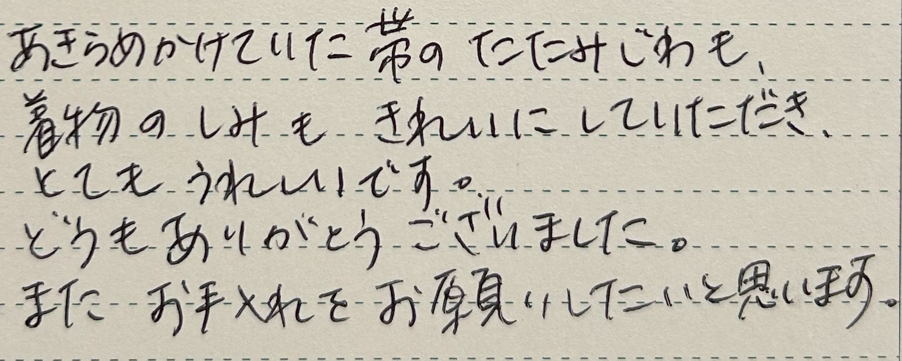 あきらめかけていた帯のたたみじわも、
着物のしみもきれいにしていただき、
とてもうれしいです。
どうもありがとうございました。
またお手入れをお願いしたいと思います。